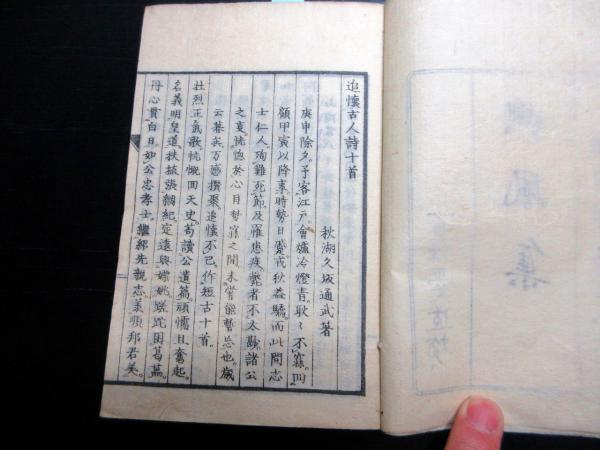 追懷古人詩十首
秋湖久坂通武著
庚申除夕。予客江戸。會爐冷燈青。耿々不寐。回
顧甲寅以降事。時勢日變。戎狄益驕。而此間志
士仁人。殉難死節及罹患疾斃者不太尠。諸公
之裏。恍惚於心目夢寐之間。未嘗能暫忘也。歳
云暮矣。万感攅聚。追懷不已。作短古十首。
壮烈正氣歌。忼慨回天史。苟讀公遺篇。頑懦且奮起。
名義明皇道。扶植張綱紀。定遠與嫖姚。蹉跎困葛藟。
丹心貫白日。如公忠孝士。繼紹先親志。羕順邦君美。
風
集